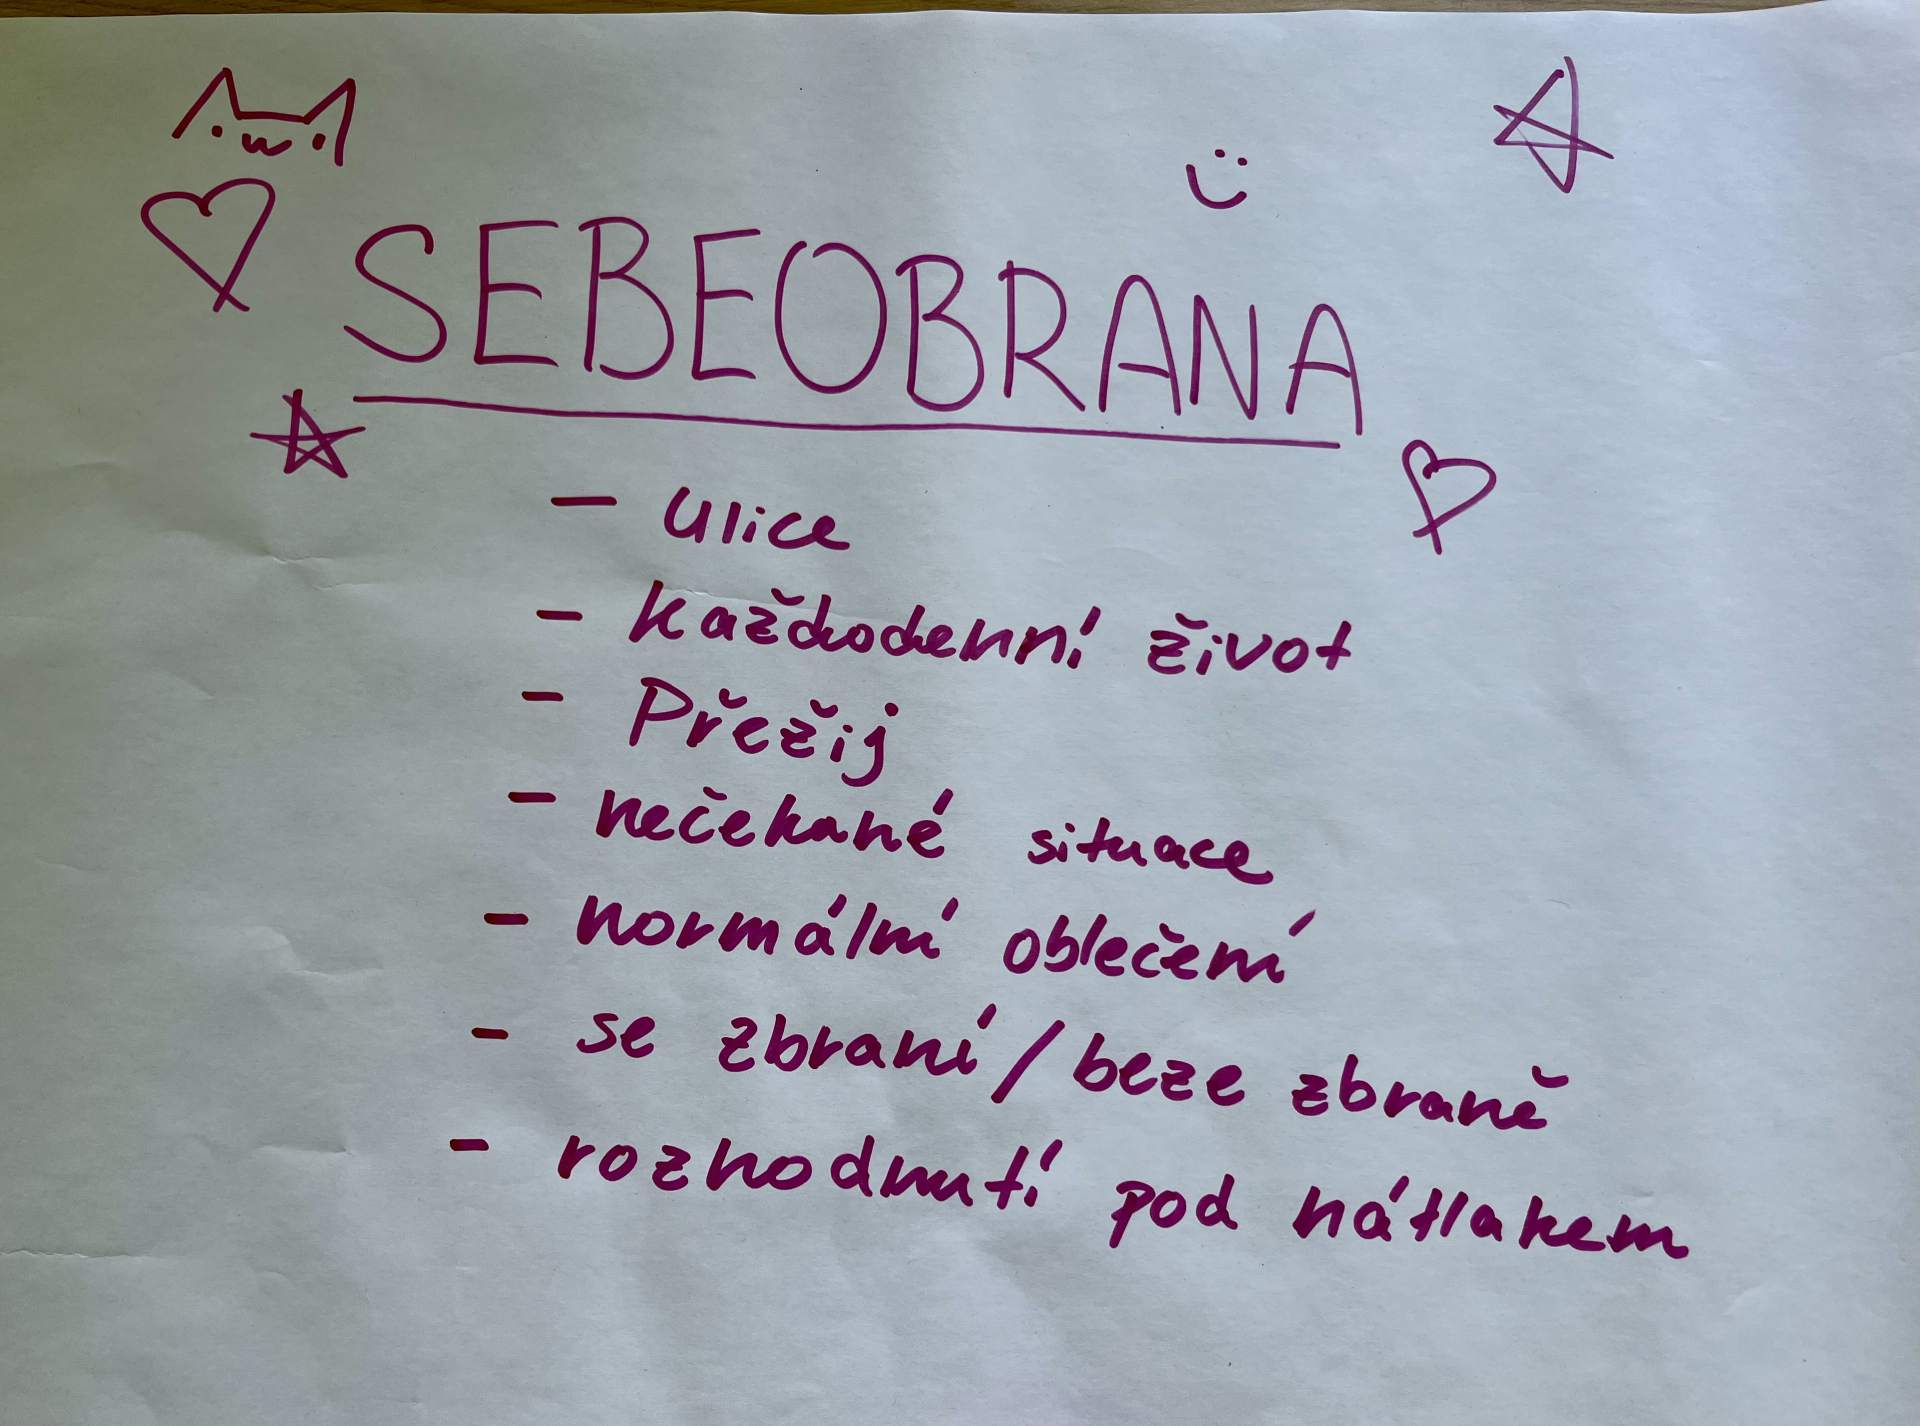 SEBEOBRANA
- ulice
- každodenní život
- Přežij
- nečekané situace
- normální oblečení
- se zbraní/beze zbraně
- rozhodnutí pod nátlakem